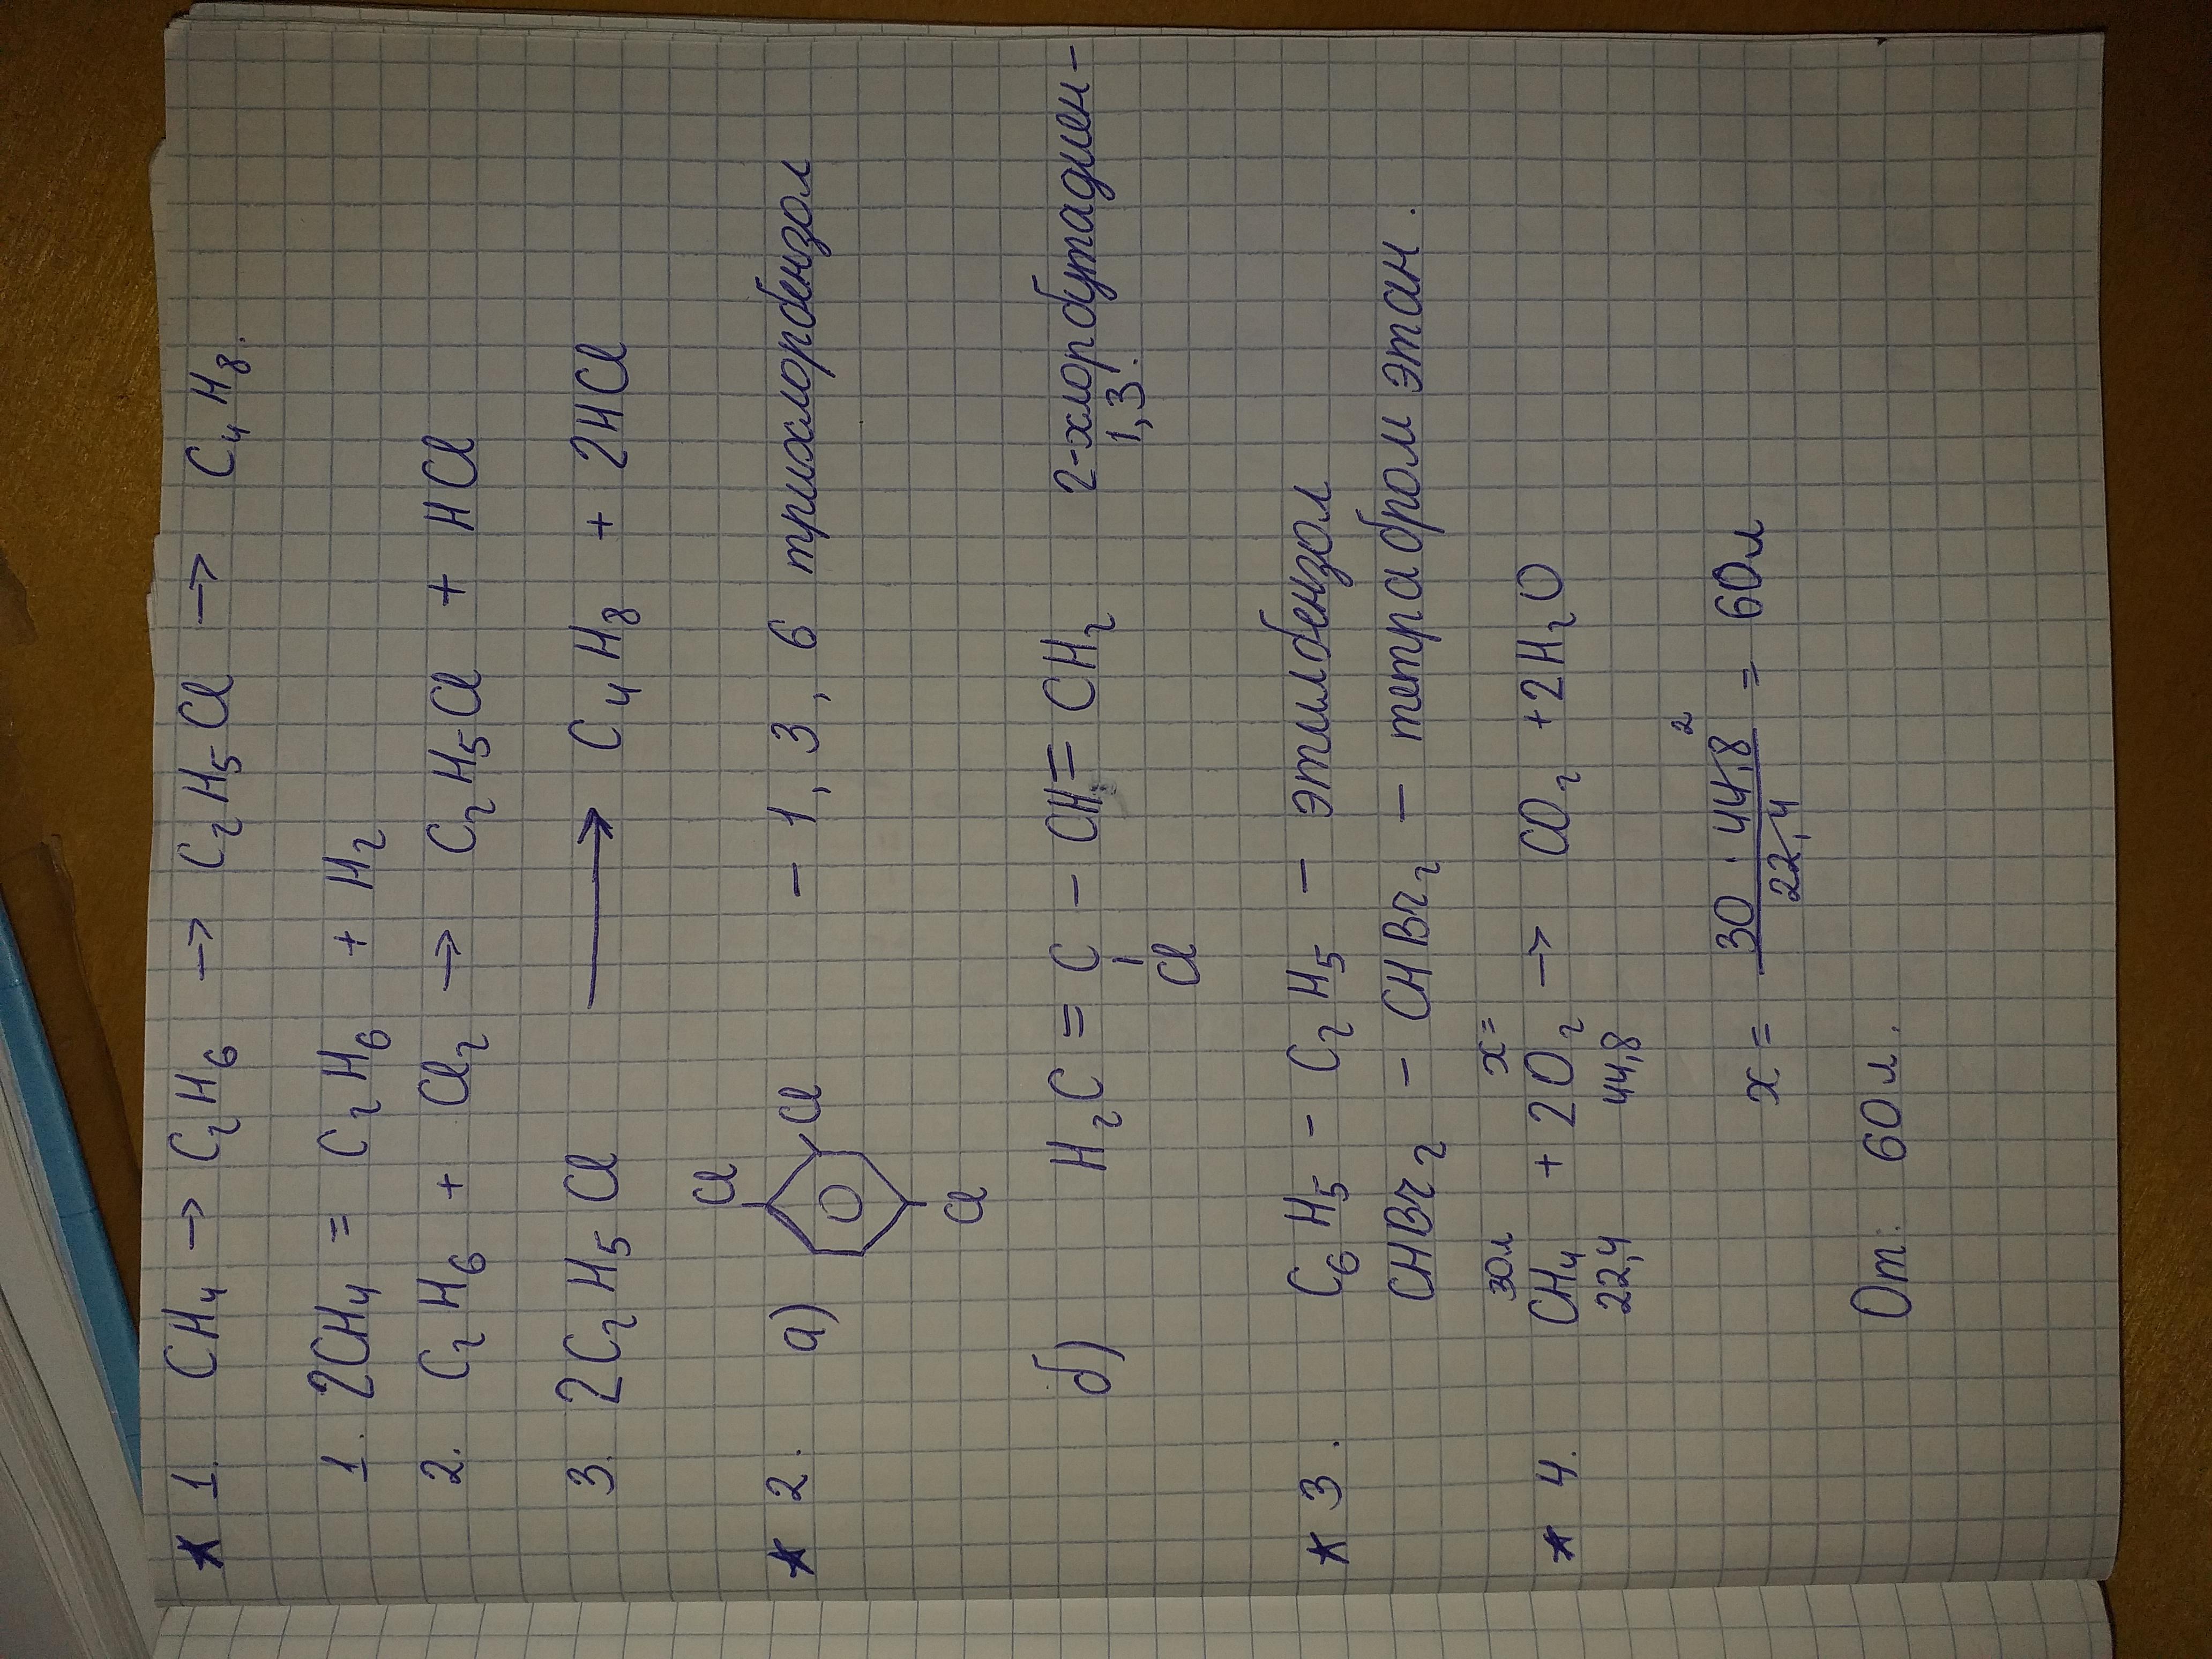 * 1. CH₄ → C₂H₆ → C₂H₅Cl → C₄H₈.
1. 2CH₄ = C₂H₆ + H₂
2. C₂H₆ + Cl₂ → C₂H₅Cl + HCl
3. 2C₂H₅Cl ⟶ C₄H₈ + 2HCl
Cl
* 2. а) Cl - 1, 3, 6 трихлорбензол
Cl
б) H₂C = C - CH = CH₂ 2-хлорбутадиен-
Cl 1,3.
* 3. C₆H₅ - C₂H₅ - этилбензол
CHBr₂ - CHBr₂ - тетрабром этан.
30л x=
* 4. CH₄ + 2O₂ → CO₂ + 2H₂O
22,4 44,8
x = 30 · 44,8 2 / 22,4 = 60л
От: 60л.